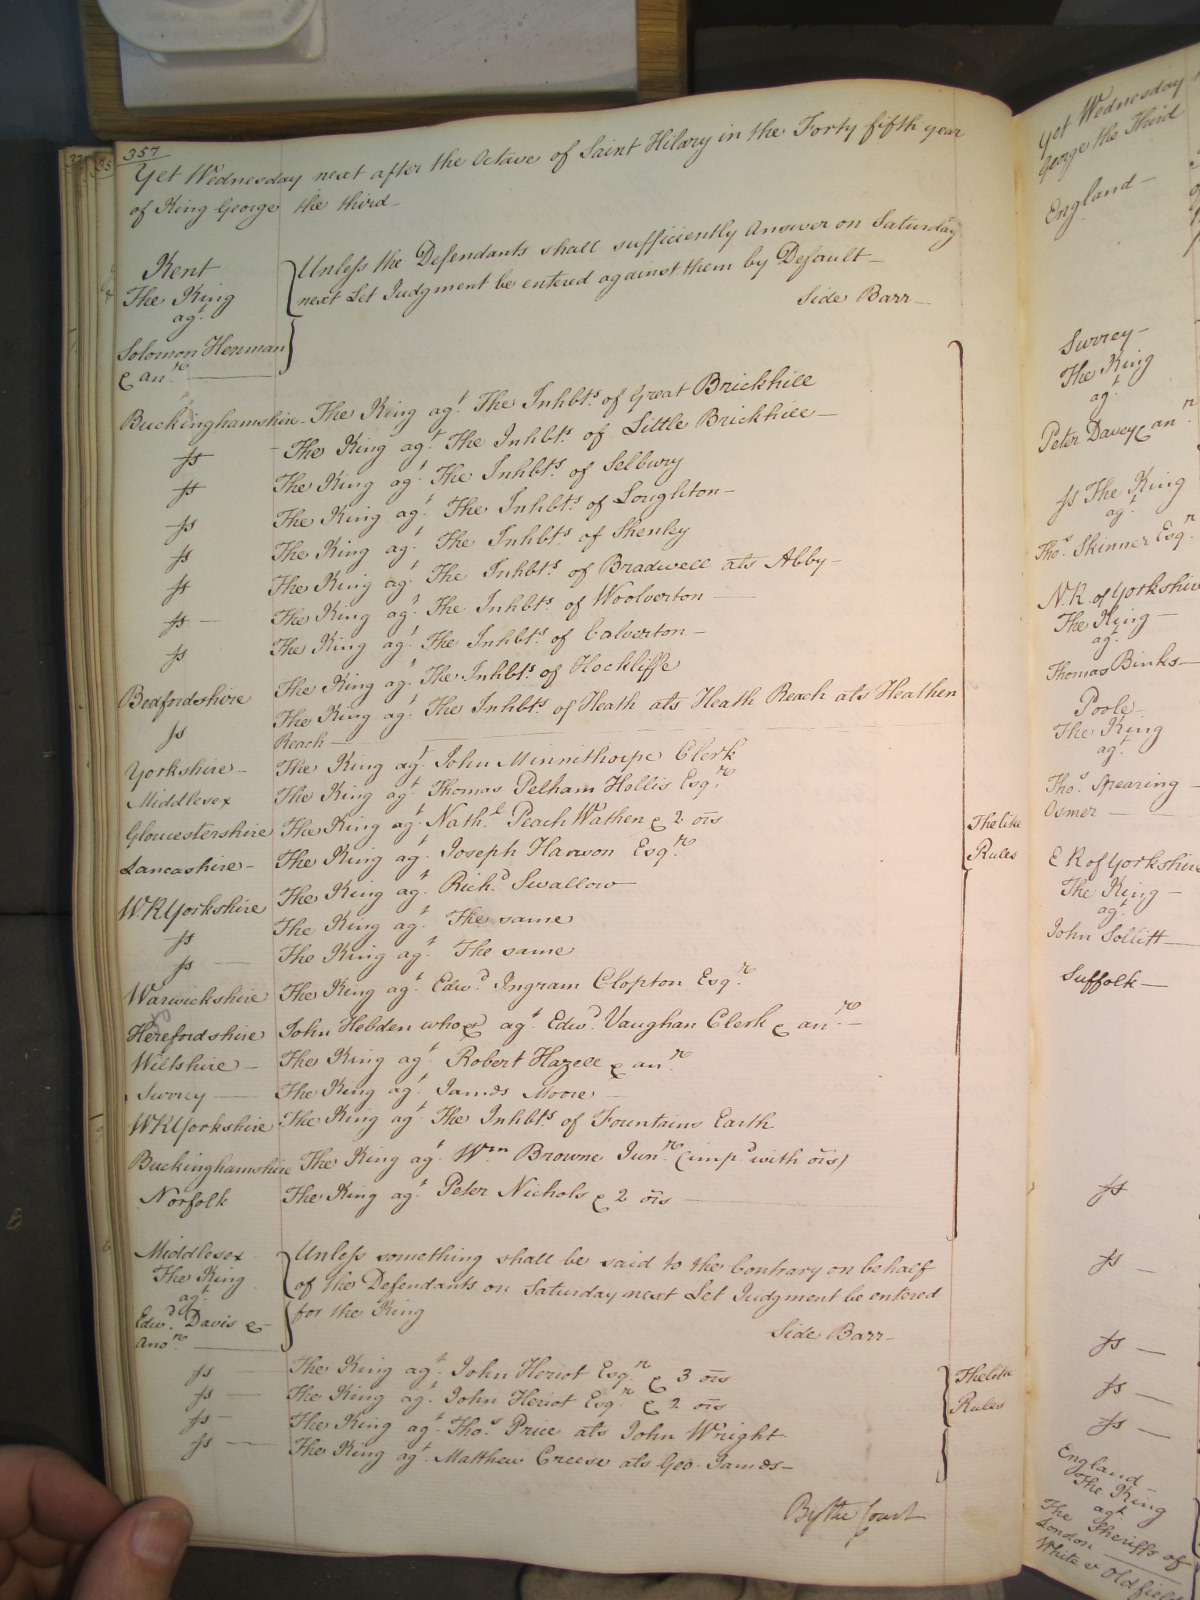 357
Yet Wednesday next after the Octave of Saint Hilary in the Forty fifth year
of King George the third -
Kent
The King
agt.
Solomon Henman
& anr.
Unless the Defendants shall sufficiently Answer on Saturday
next Let Judgment be entered against them by Default -
Side Barr -
Buckinghamshire - The King agt. The Inhbts. of Great Brickhill
Js - The King agt. The Inhbts. of Little Brickhill -
Js The King agt. The Inhbts. of Selbury
Js The King agt. The Inhbts. of Loughton -
Js The King agt. The Inhbts. of Shenley
Js The King agt. The Inhbts. of Bradwell als Abby -
Js - The King agt. The Inhbts. of Woolverton -
Js The King agt. The Inhbts. of Calverton -
Bedfordshire The King agt. The Inhbts. of Hockliffe
Js The King agt. The Inhbts. of Heath als Heath Reach als Heathen
Reach -
Yorkshire - The King agt. John Minnithorpe Clerk
Middlesex The King agt. Thomas Pelham Hollis Esqr.
Gloucestershire The King agt. Nathl. Peach Wathen & 2 ors
Lancashire - The King agt. Joseph Hanson Esqr.
WRYorkshire The King agt. Richd. Swallow
Js The King agt. The same
Js - The King agt. The same
Warwickshire The King agt. Edwd. Ingram Clopton Esqr.
Herefordshire John Hebden who &c agt. Edwd. Vaughan Clerk & anr. -
Wiltshire - The King agt. Robert Hazell & anr.
Surrey - The King agt. James Moore -
WRYorkshire The King agt. The Inhbts. of Fountains Earth
Buckinghamshire The King agt. Wm Browne Junr. (impd. with ors)
Norfolk The King agt. Peter Nichols & 2 ors -
The like
Rules
Middlesex
The King
agt.
Edwd. Davis &
anor.
Unless something shall be said to the Contrary on behalf
of the Defendants on Saturday next Let Judgment be entered
for the King
Side Barr -
Js The King agt. John Heriot Esqr. & 3 ors
Js - The King agt. John Heriot Esqr. & 2 ors
Js - The King agt. Thos. Price als John Wright
Js - The King agt. Matthew Creese als Geo. James -
The like
Rules
By the Court
Yet Wednesday
George the Third
England -
Surrey -
The King
agt.
Peter Davey & anr.
Js The King
agt.
Thos. Skinner Esqr.
N.R. of Yorkshire
The King -
agt.
Thomas Binks -
Poole -
The King
agt.
Thos. Spearing -
Osmer -
E R of Yorkshire
The King -
agt.
John Sollitt -
Suffolk -
Js
Js -
Js -
Js -
Js -
England -
The King
agt.
The Sheriffs of
London -
White & Oldfield